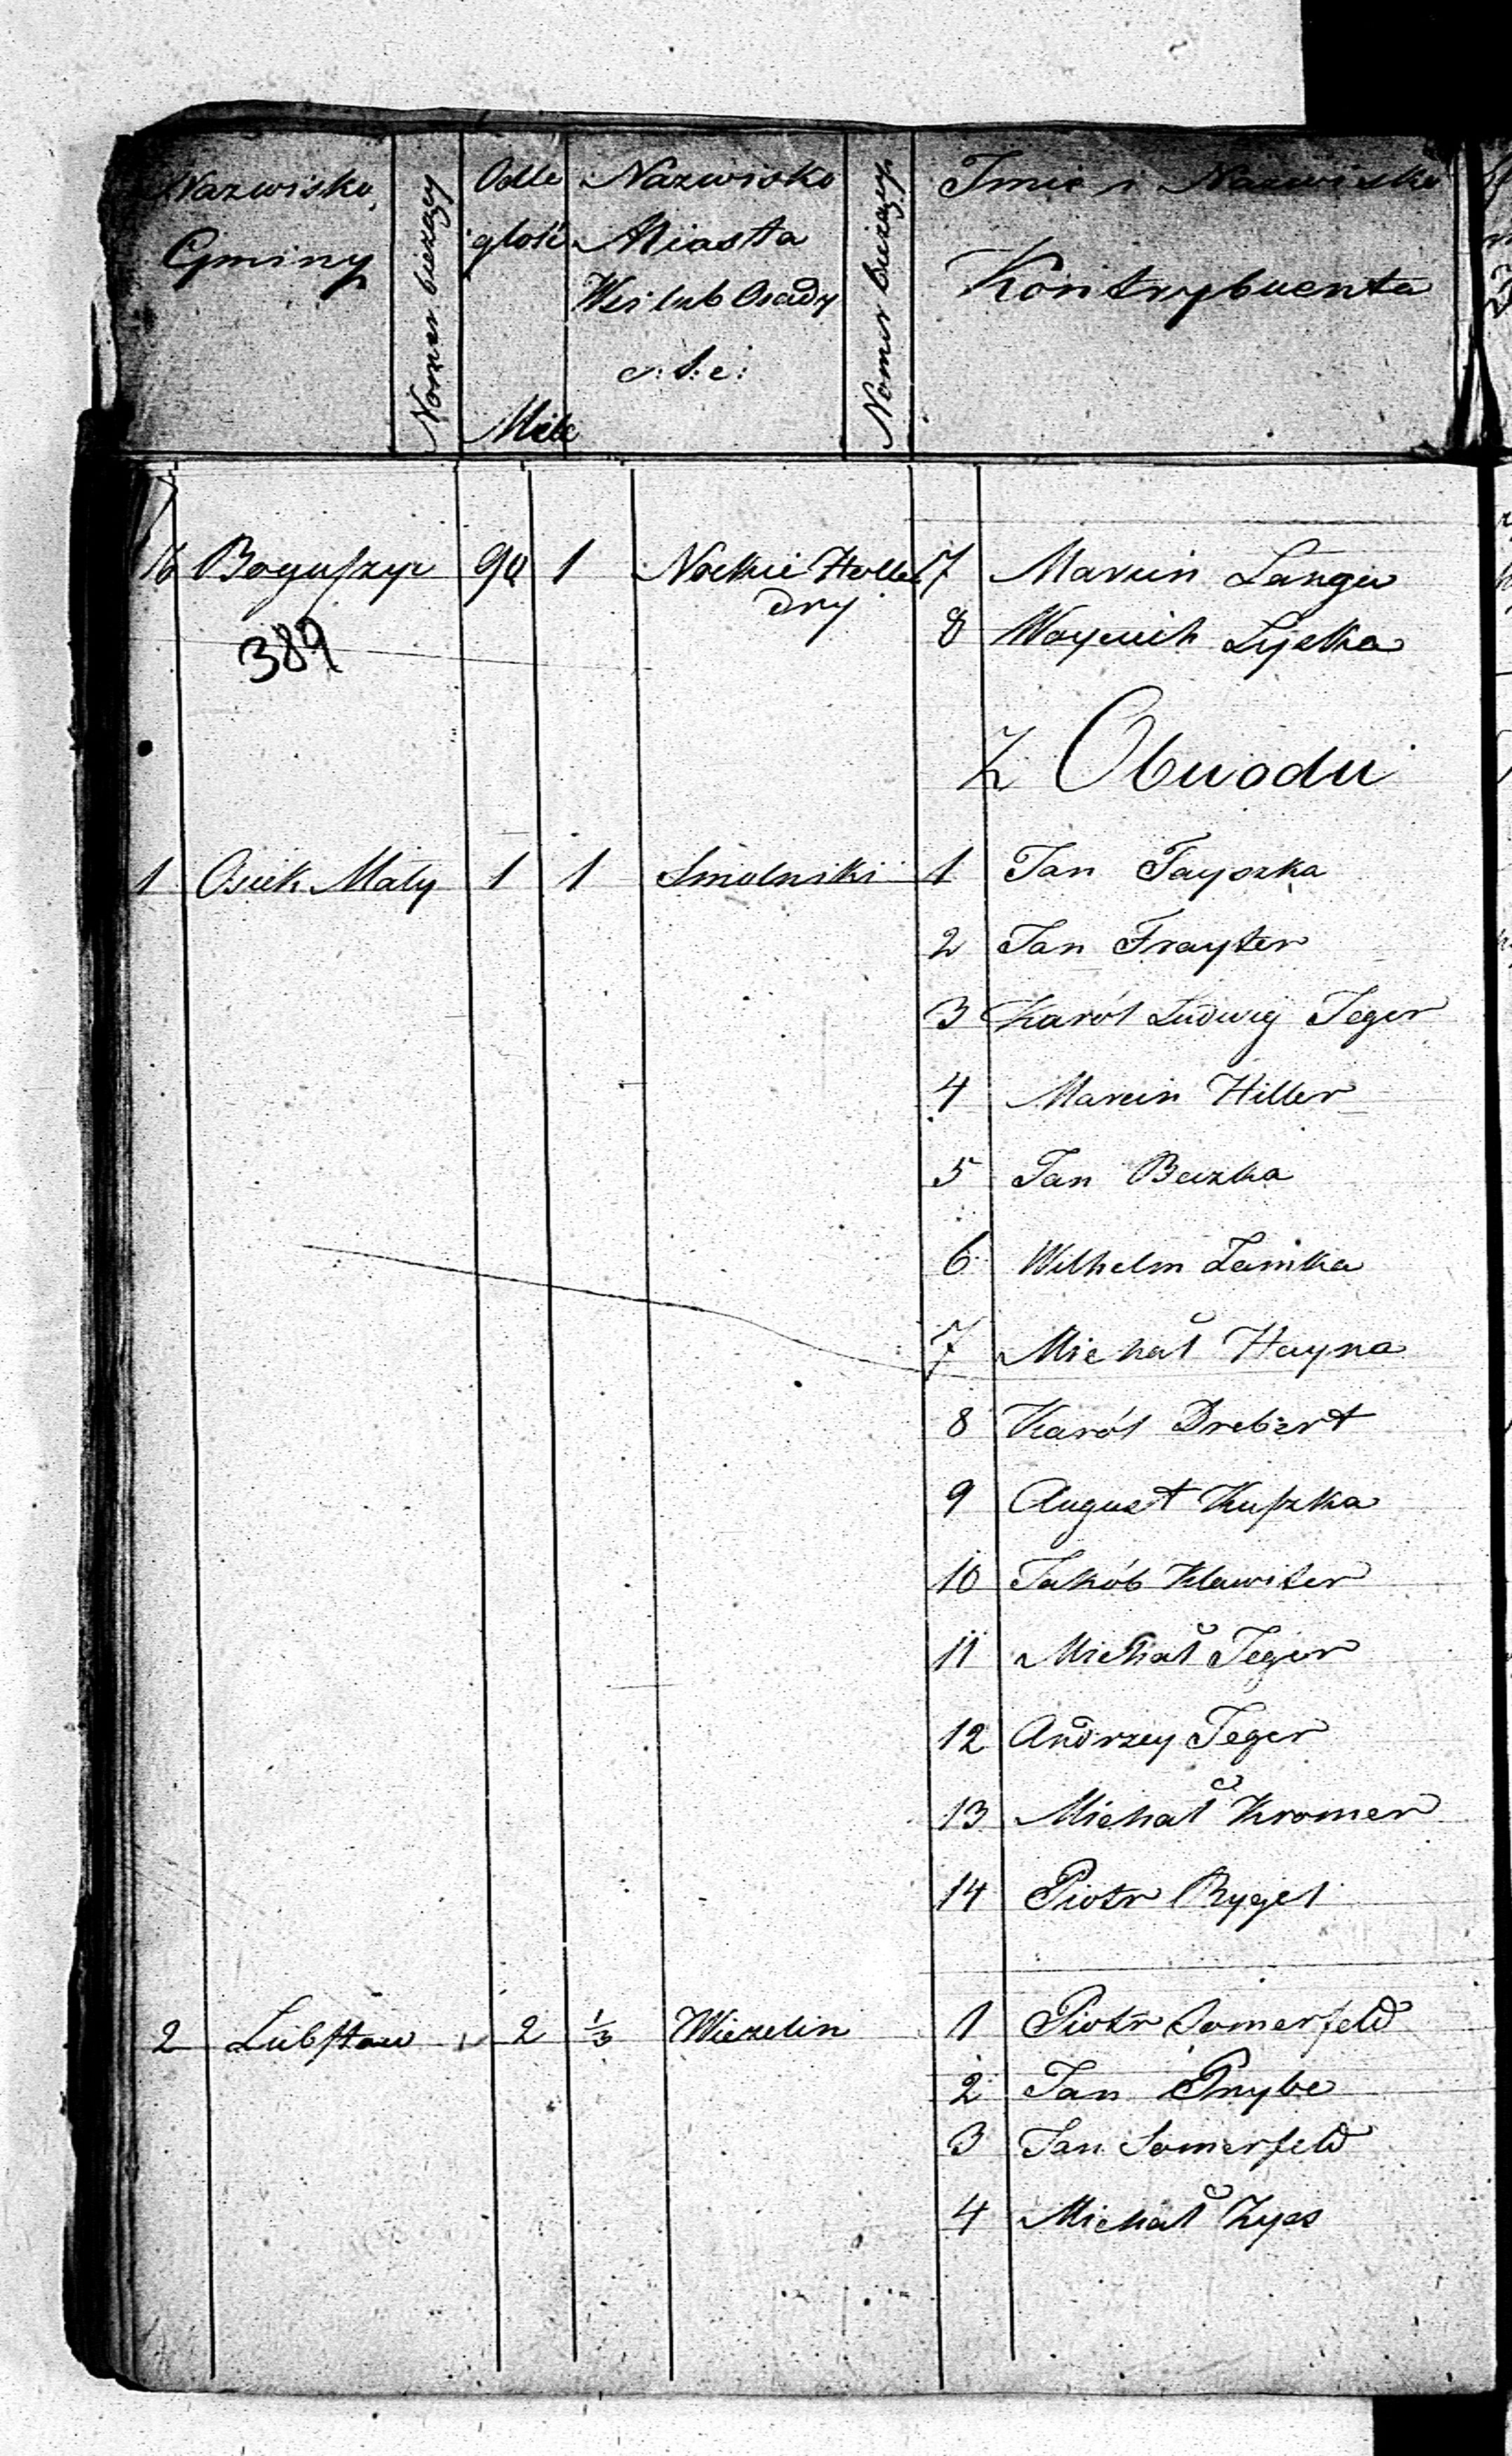 Nazwisko Gminy
Nomer bieżący
Odle głość Mile
Nazwisko Miasta Wsi lub Osady
Nomer bieżący
Imie i Nazwisko Kontrybuenta
16 Boguszyc 90 1 Nockie Hollen 7 Marcin Langa
dry
389 8 Woyciech
Z Obwodu
1 Osiek Mały 1 1 Smolniki 1 Jan Fayszka
2 Jan Frayter
3 Karól Ludwig Jeger
4 Marcin Hiller
5 Jan Beczka
6 Wilhelm Lamka
7 Michał Hayna
8 Karól Drebert
9 August Kuszka
10 Jakób Klawiter
11 Michał Jeger
12 Andrzey Jeger
13 Michał Kromer
14 Piotr Rygel
2 Lubstow 2 1/3 Wiezelin 1 Piotr Somerfeld
2 Jan Pnybe
3 Jan Somerfeld
4 Michał Zyes